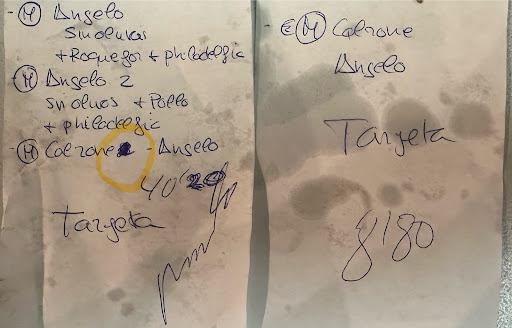 - Ⓜ Angelo
Sin olivas
+ Roquefor + philadelfia
- Ⓜ Angelo 2
Sin olivas + Pollo
+ philadelfia
- Ⓜ Calzone - Angelo
40'20
Targeta
- € Ⓜ Calzone
Angelo
Targeta
8'80